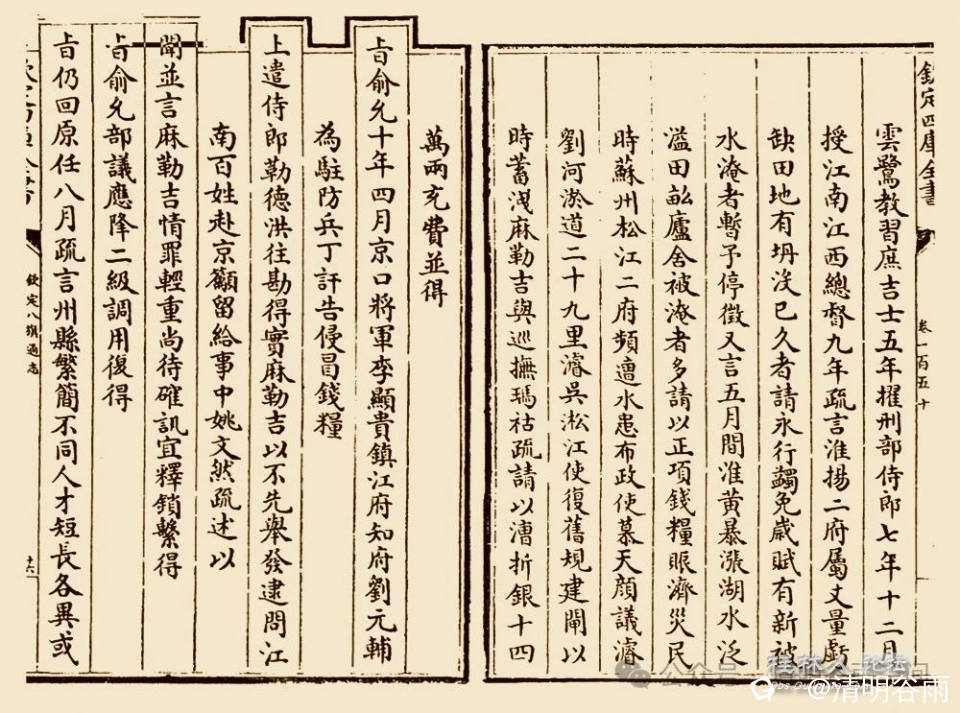 欽定四庫全書
卷一百五十
雲鷺教習庶吉士五年擢刑部侍郎七年十二月
授江南江西總督九年疏言淮揚二府屬丈量虧
缺田地有坍沒已久者請永行蠲免歲賦有新被
水淹者暫予停徵又言五月間淮黄暴漲湖水泛
溢田畝廬舍被淹者多請以正項錢糧賑濟災民
時蘇州松江二府頻遭水患布政使慕天顔議濬
劉河淤道二十九里濬吳淞江使復舊規建閘以
時蓄洩麻勒吉與巡撫瑪祜疏請以漕折銀十四
萬兩充費並得
旨俞允十年四月京口將軍李顯貴鎮江府知府劉元輔
為駐防兵丁訐告侵冒錢糧
上遣侍郎勒德洪往勘得實麻勒吉以不先舉發逮問江
南百姓赴京籲留給事中姚文然疏述以
聞並言麻勒吉情罪輕重尚待確訊宜釋鎖繫得
旨俞允部議應降二級調用復得
旨仍回原任八月疏言州縣繁簡不同人才短長各異或
欽定八旗通志
公众号
桂林人论坛
@清明谷雨